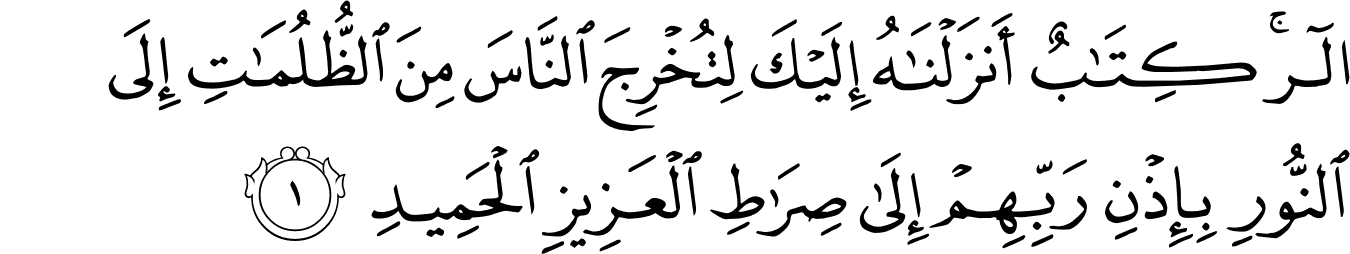 الٓرۚ كِتَٰبٌ أَنزَلْنَٰهُ إِلَيْكَ لِتُخْرِجَ ٱلنَّاسَ مِنَ ٱلظُّلُمَٰتِ إِلَى
ٱلنُّورِ بِإِذْنِ رَبِّهِمْ إِلَىٰ صِرَٰطِ ٱلْعَزِيزِ ٱلْحَمِيدِ ١